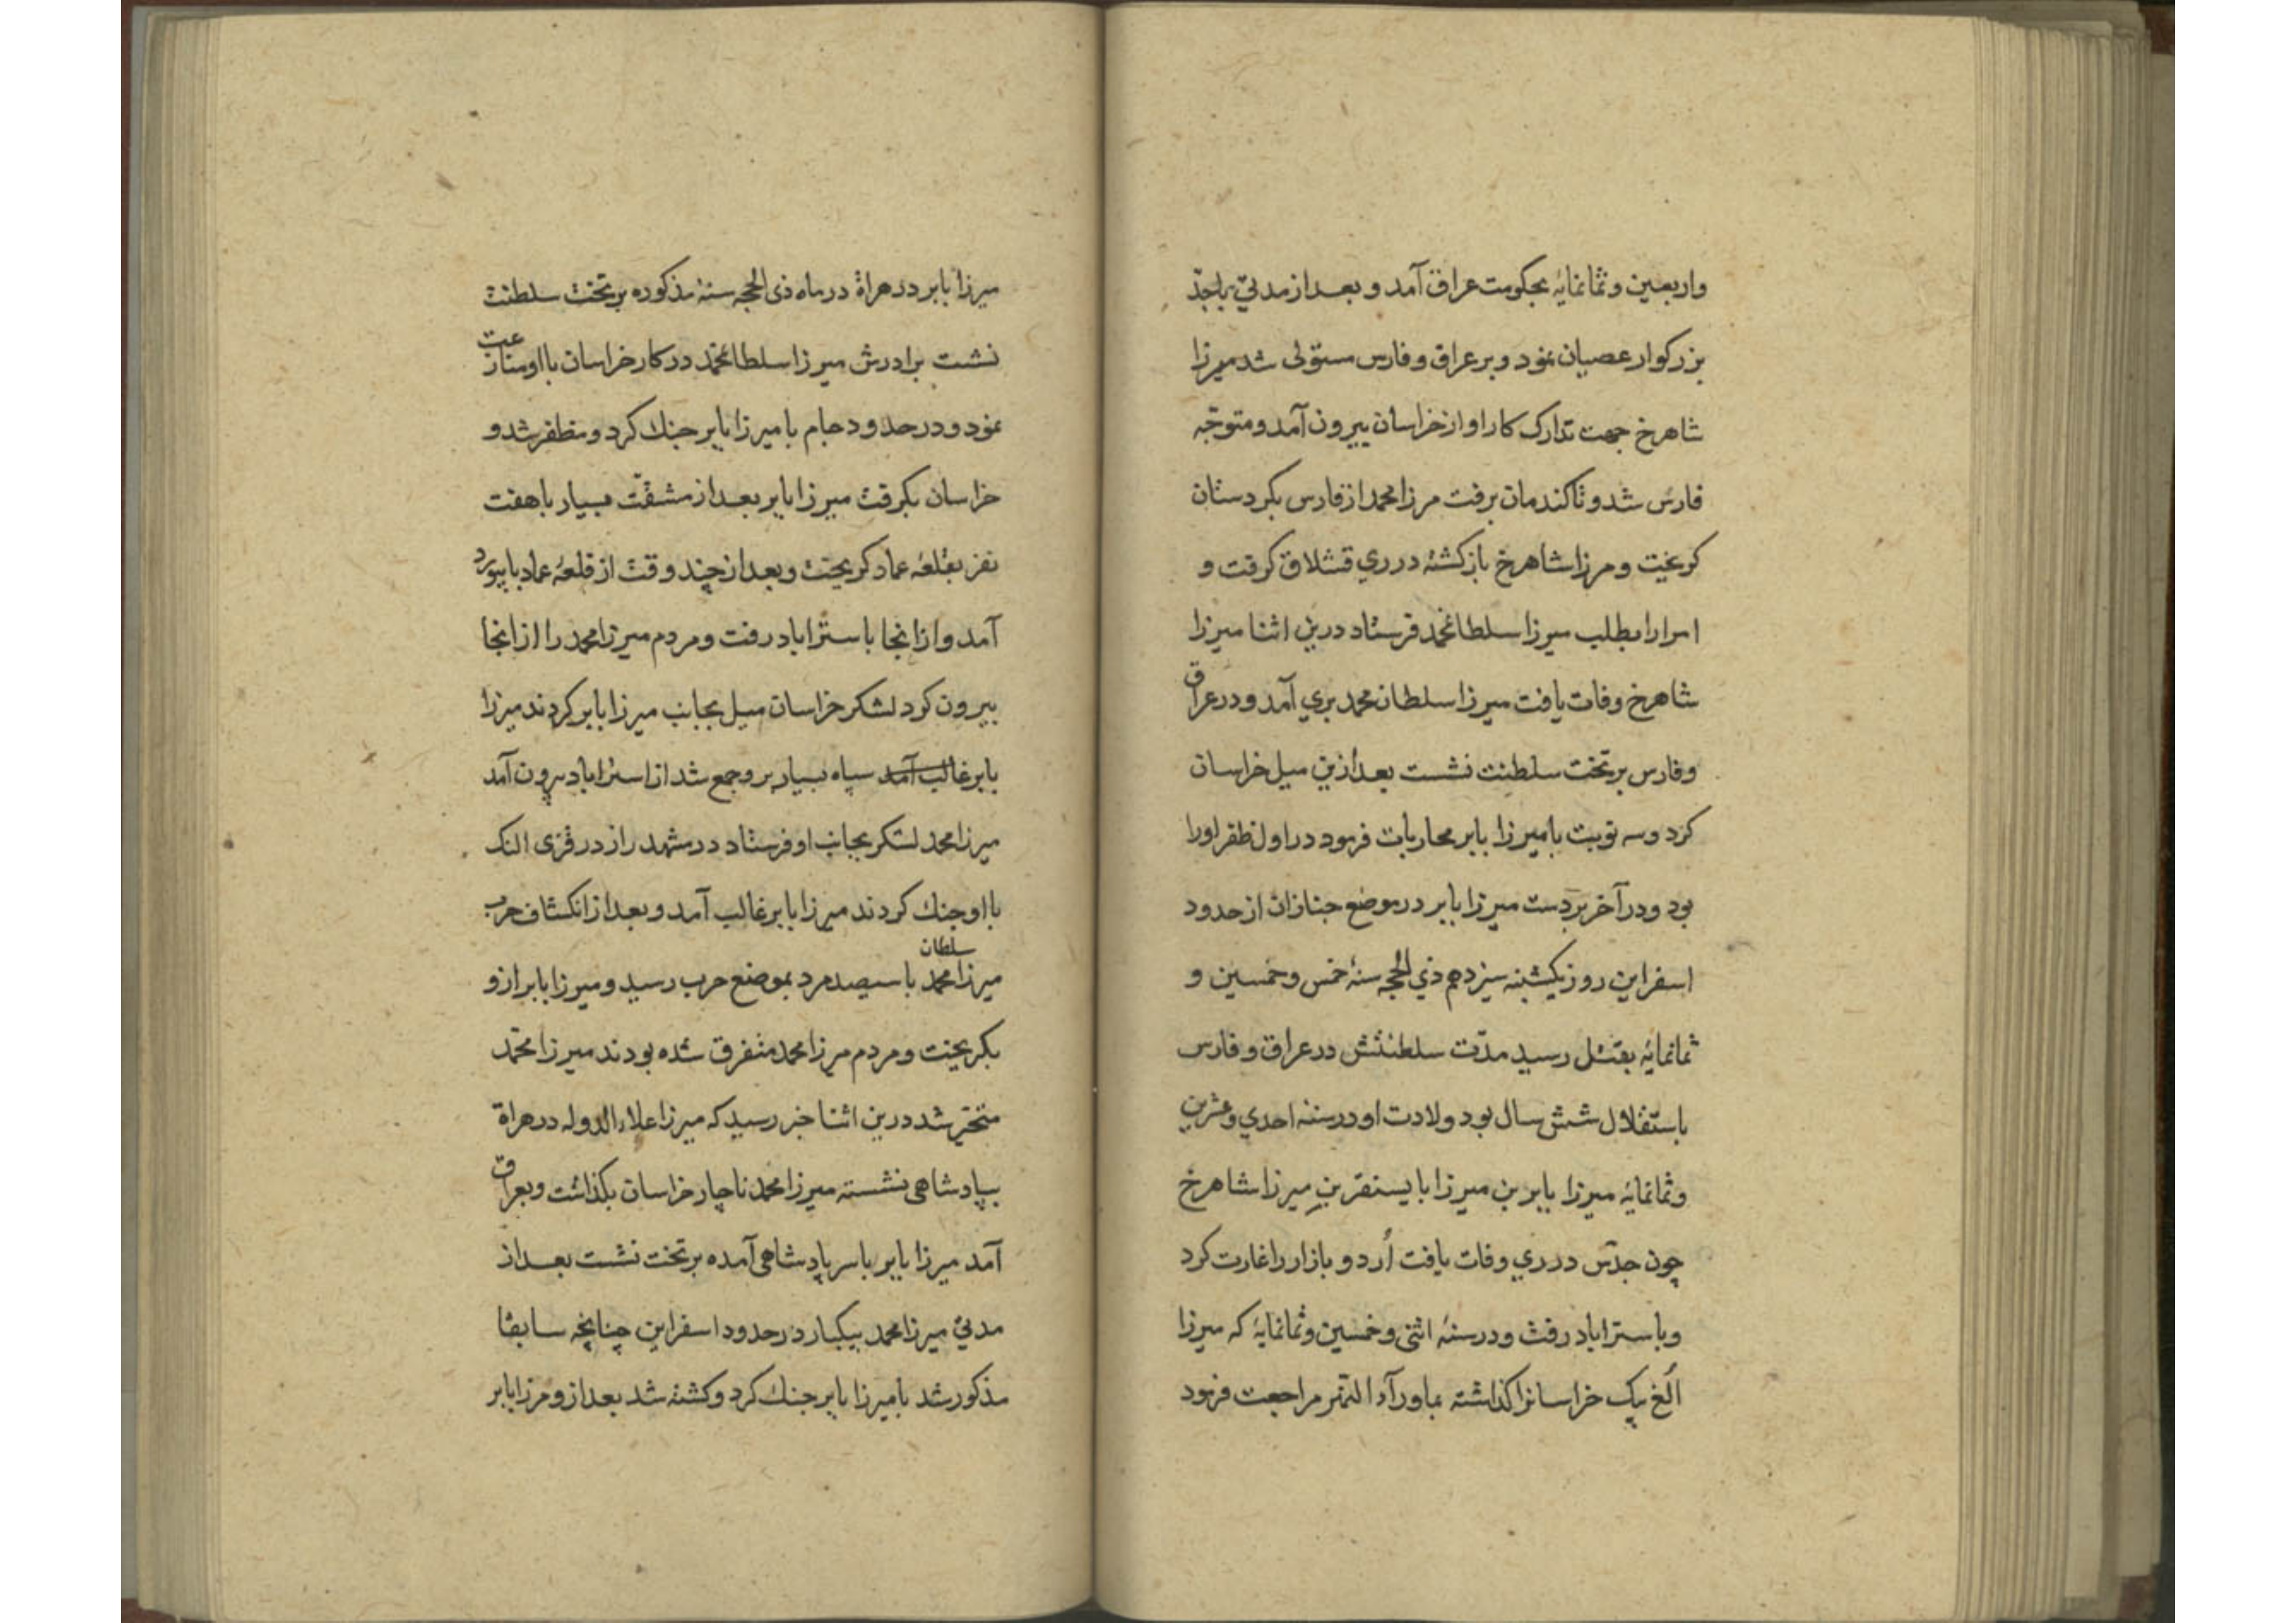 واربعین و ثمانمایه بحکومت عراق آمد و بعد از مدتی با جد
بزرکوار عصیان نمود و بر عراق و فارس مستولی شد میرزا
شاهرخ جهت تدارک کار او از خراسان بیرون آمد و متوجّه
فارس شد و تا کندمان برفت مرزا محمد از فارس بکردستان
کریخت و مرزا شاهرخ بازکشته در ري قشلاق کرفت و
امرا را بطلب میرزا سلطانمحمد فرستاد درین اثنا میرزا
شاهرخ وفات یافت میرزا سلطان محمد بري آمد و در عراق
و فارس بر تخت سلطنت نشست بعد ازین میل خراسان
کرد و سه نوبت با میرزا بابر محاربات فرمود در اول ظفر او را
بود و در آخر بر دست میرزا بابر در موضع جنازان از حدود
اسفراین روز یکشبنه سیزدهم ذي الحجه سنهٔ خمس و خمسین و
ثمانمایه بقتل رسید مدّت سلطنتش در عراق و فارس
باستقلال شش سال بود ولادت او در سنه احدي و عشرین
و ثمانمایه میرزا بابر بن میرزا بایسنقر بن میرزا شاهرخ
چون جدّش در ري وفات یافت اُردو بازار را غارت کرد
و باستراباد رفت و در سنهٔ اثنی و خمسین و ثمانمایهٔ که میرزا
اُلغ بیک خراسانرا کذاشته بماورآء النّهر مراجعت فرمود
میرزا بابر در هراة در ماه ذی الحجه سنهٔ مذکوره بر تخت سلطنت
نشست برادرش میرزا سلطانمحمّد در کار خراسان با او منازعت
نمود و در حدود جام با میرزا بابر جنك کرد و مظفر شد و
خراسان بکرفت میرزا بابر بعد از مشقّت بسیار با هفت
نفر بقلعهٔ عماد کریخت و بعد از چند وقت از قلعهٔ عماد بابیورد
آمد و از انجا باستراباد رفت و مردم میرزا محمد را از انجا
بیرون کرد لشکر خراسان میل بجانب میرزا بابر کردند میرزا
بابر غالب آمد سپاه بسیار برو جمع شد از استراباد بیرون آمد
میرزا محمد لشکر بجانب او فرستاد در مشهد راز در قزی النک
با او جنك کردند میرزا بابر غالب آمد و بعد از انکشاف حرب
میرزا سلطان محمد با سیصد مرد بموضع حرب رسید و میرزا بابر ازو
بکریخت و مردم میرزا محمد متفرق شده بودند میرزا محمّد
متحیّر شد درین اثنا خبر رسید که میرزا علاء الدوله در هراة
بپادشاهی نشسته میرزا محمد ناچار خراسان بکذاشت و بعراق
آمد میرزا بابر با سر پادشاهی آمده بر تخت نشست بعد از
مدتي میرزا محمد بیکبار در حدود اسفراین چنانچه سابقا
مذکور شد با میرزا بابر جنك کرد و کشته شد بعد ازو مرزا بابر